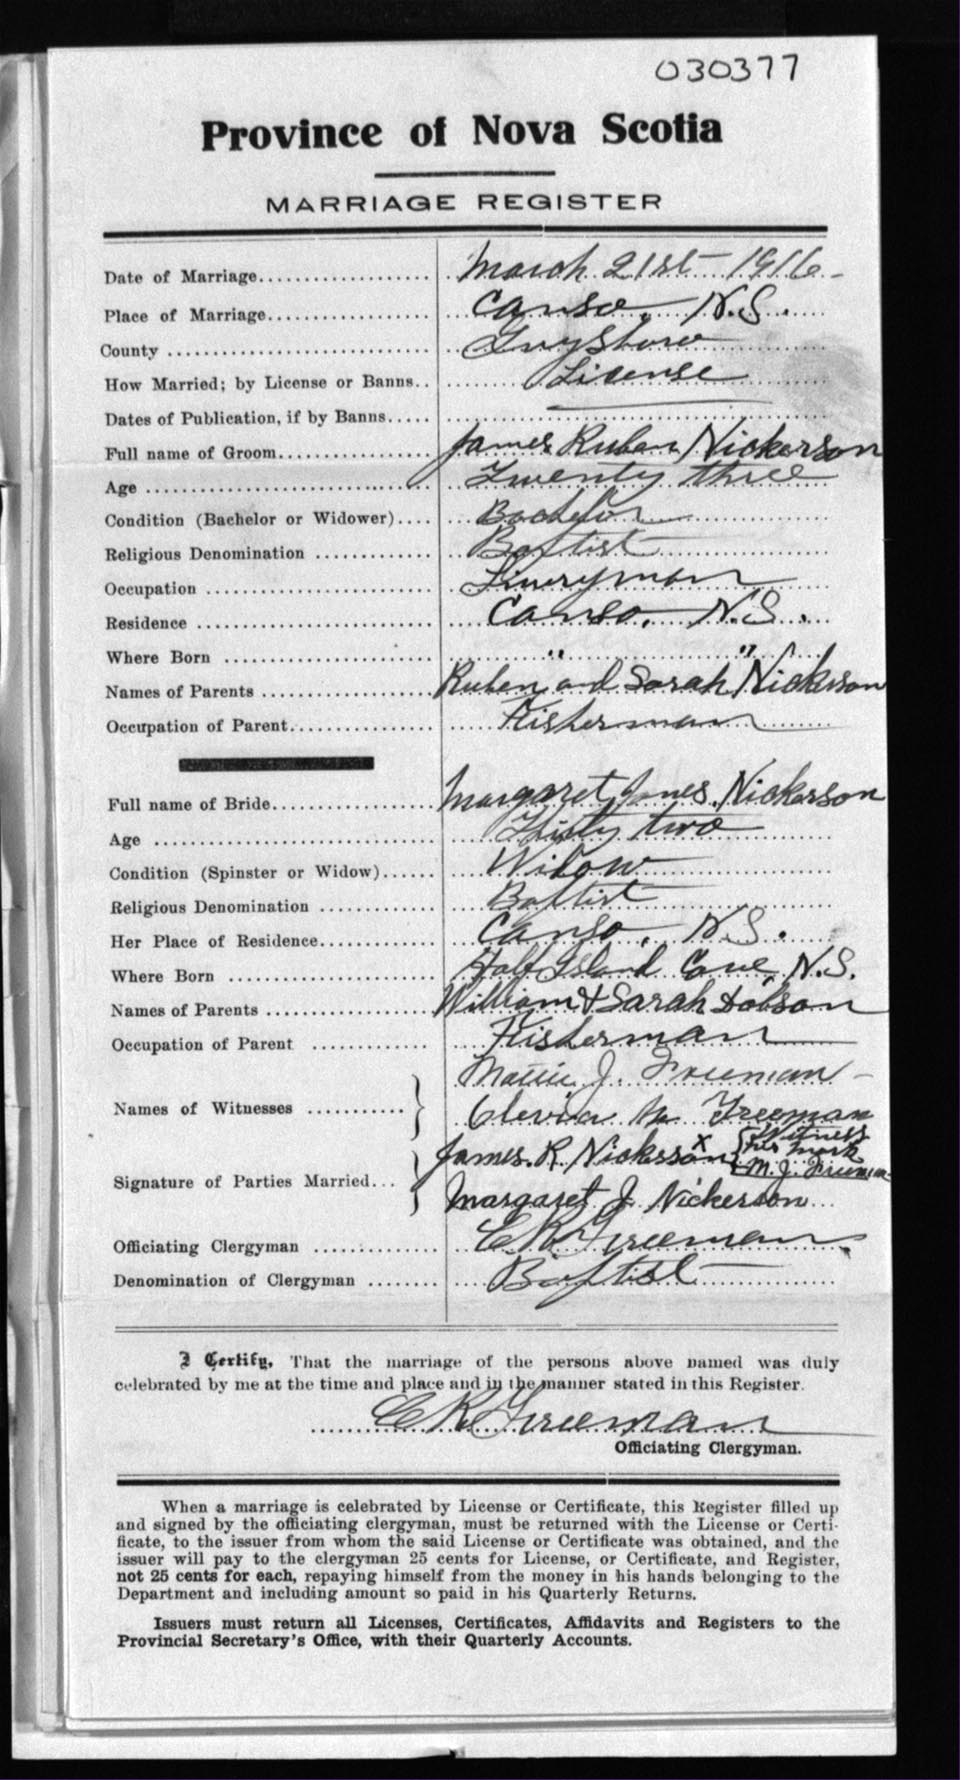 030377
Province of Nova Scotia
MARRIAGE REGISTER
Date of Marriage.................... March 21st 1916
Place of Marriage................... Canso, N.S.
County ................................ Guysboro
How Married; by License or Banns.. License
Dates of Publication, if by Banns.....
Full name of Groom.................. James Ruben Nickerson
Age .................................... Twenty three
Condition (Bachelor or Widower).... Bachelor
Religious Denomination .............. Baptist
Occupation ........................... Liveryman
Residence ............................ Canso, N.S.
Where Born ......................... " "
Names of Parents ................... Ruben and Sarah Nickerson
Occupation of Parent................. Fisherman
Full name of Bride................... Margaret Jones Nickerson
Age .................................... Thirty two
Condition (Spinster or Widow)...... Widow
Religious Denomination .............. Baptist
Her Place of Residence.............. Canso, N.S.
Where Born ......................... Half Island Cove, N.S.
Names of Parents ................... William & Sarah Dobson
Occupation of Parent .............. Fisherman
Mattie J. Freeman
Names of Witnesses ........... } Freeman
James R. Nickerson x { Witness his mark M. J. Freeman
Signature of Parties Married... } Margaret J. Nickerson
Officiating Clergyman .............. C R Freeman
Denomination of Clergyman ........ Baptist
I Certify, That the marriage of the persons above named was duly
celebrated by me at the time and place and in the manner stated in this Register.
C R Freeman
Officiating Clergyman.
When a marriage is celebrated by License or Certificate, this Register filled up
and signed by the officiating clergyman, must be returned with the License or Certi-
ficate, to the issuer from whom the said License or Certificate was obtained, and the
issuer will pay to the clergyman 25 cents for License, or Certificate, and Register,
not 25 cents for each, repaying himself from the money in his hands belonging to the
Department and including amount so paid in his Quarterly Returns.
Issuers must return all Licenses, Certificates, Affidavits and Registers to the
Provincial Secretary's Office, with their Quarterly Accounts.